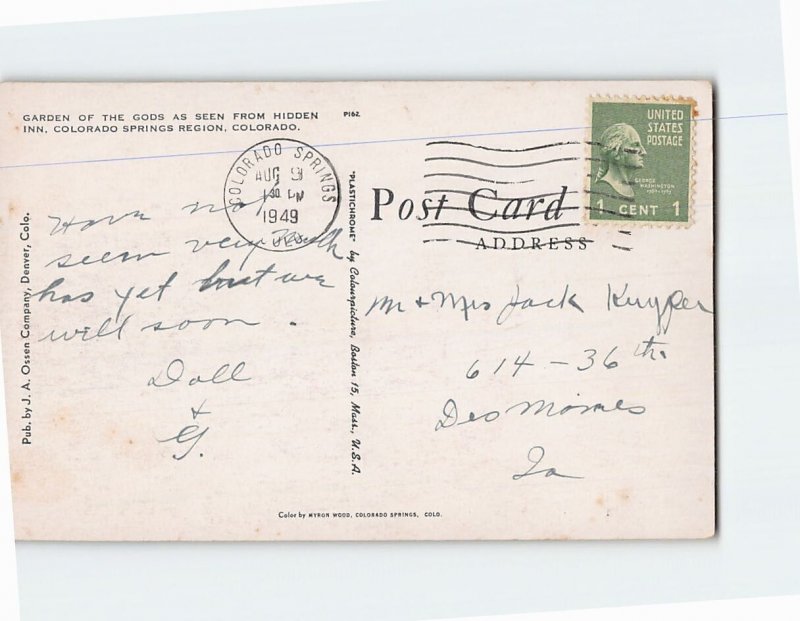 GARDEN OF THE GODS AS SEEN FROM HIDDEN
INN, COLORADO SPRINGS REGION, COLORADO.
P162
COLORADO SPRINGS
AUG 9
30 PM
1949
COLO.
UNITED
STATES
POSTAGE
GEORGE
WASHINGTON
1 CENT 1
Post Card
ADDRESS
Have not
seem very
has yet but we
will soon.
Doll
+
G.
Mr + Mrs Jack Kuyper
614 - 36 th.
Des Moines
Ia
Pub. by J. A. Ossen Company, Denver, Colo.
"PLASTICHROME" by Colourpicture, Boston 15, Mass., U.S.A.
Color by MYRON WOOD, COLORADO SPRINGS, COLO.